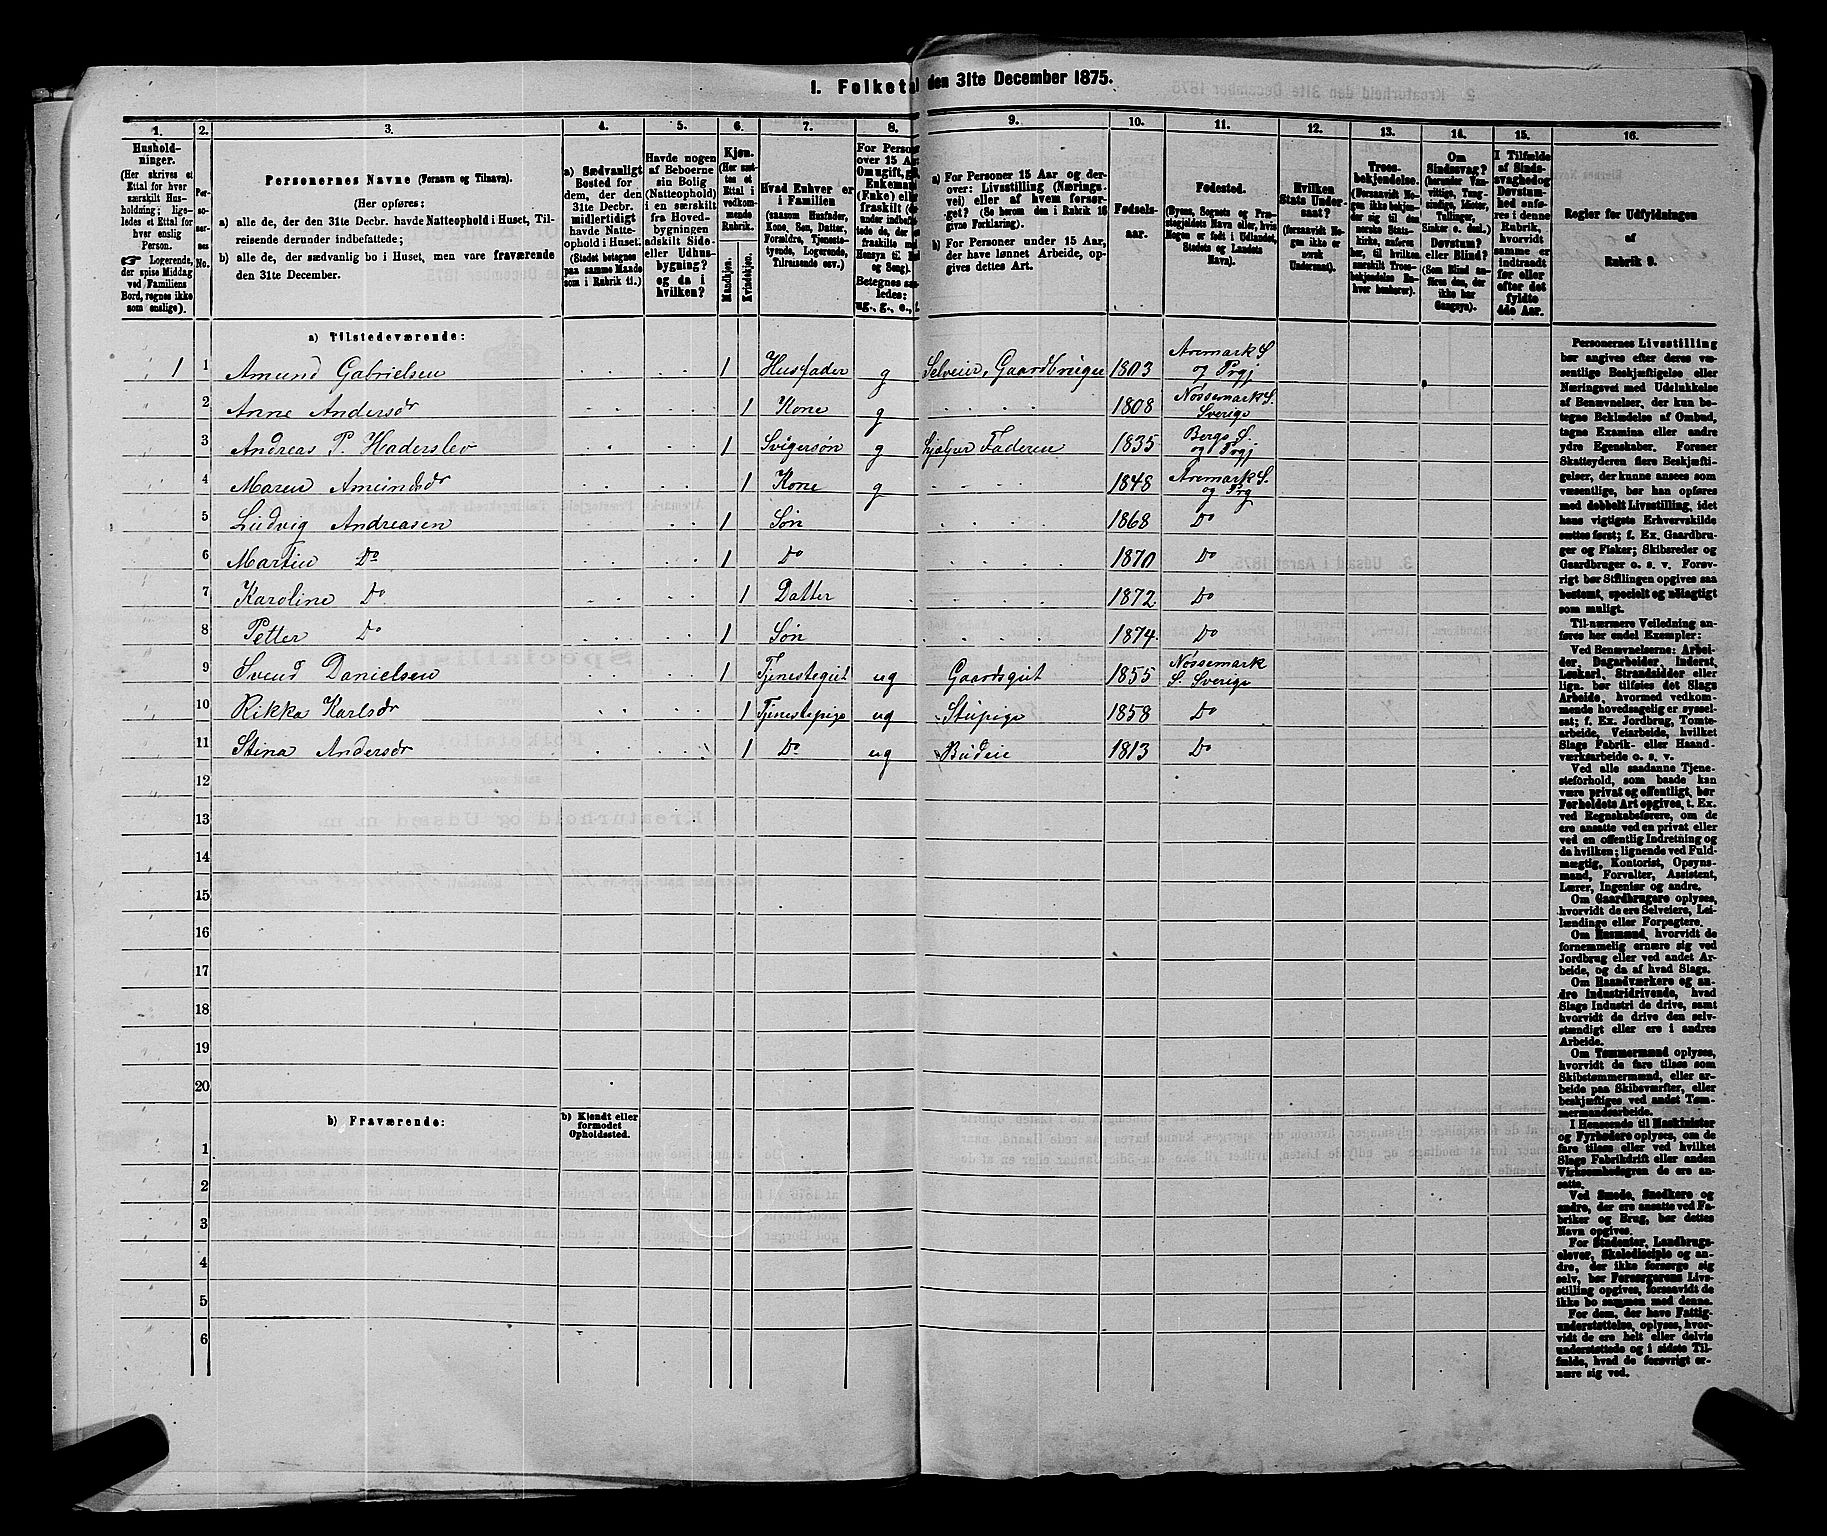 1. Folketal den 31te December 1875.
1. 2. 3. 4. 5. 6. 7. 8. 9. 10. 11. 12. 13. 14. 15. 16.
Hushold-
ninger.
(Her skrives et
Ettal for hver
særskilt Hus-
holdning; lige-
ledes et Ettal for
hver enslig
Person.
☞ Logerende,
der spise Middag
ved Familiens
Bord, regnes ikke
som enslige).
Per-
so-
ner-
nes
No.
Personernes Navne (Fornavn og Tilnavn).
(Her opføres:
a) alle de, der den 31te Decbr. havde Natteophold i Huset, Til-
reisende derunder indbefattede;
b) alle de, der sædvanlig bo i Huset, men vare fraværende
den 31te December.
a) Sædvanligt
Bosted for
dem, der den
31te Decbr.
midlertidigt
havde Natte-
ophold i Huset.
(Stedet betegnes
paa samme Maade
som i Rubrik 11.)
Havde nogen
af Beboerne
sin Bolig
(Natteophold)
i en særskilt
fra Hoved-
bygningen
adskilt Side-
eller Udhus-
bygning?
og da i
hvilken?
Kjøn.
(Her sæt-
tes et
Ettal i
vedkom-
mende
Rubrik.
Mandkjøn.
Kvindekjøn.
Hvad Enhver er
i Familien
(saasom Husfader,
Kone, Søn, Datter,
Forældre, Tjeneste-
tyende, Logerende,
Tilreisende osv.)
For Person
over 15 Aar
Om ugift, g
Enkemand
(Enke) elle
fraskilt (d
under indbefat-
tede de, der e
fraskilte med
Hensyn til B
og Seng).
Betegnes saa-
ledes:
ug., g., e., f.
a) For Personer 15 Aar og der-
over: Livsstilling (Nærings-
vei) eller af hvem forsør-
get? (Se herom den i Rubrik 16
givne Forklaring).
b) For Personer under 15 Aar,
der have lønnet Arbeide, op-
gives dettes Art.
Fødsels-
aar.
Fødested.
(Byens, Sognets og Præ-
stegjeldets Navn eller, hvis
Nogen er født i Udlandet,
Stedets og Landets
Navn).
Hvilken
Stats Under-
saat?
(forsaavidt No-
gen ikke er
norsk
Undersaat).
Troes-
bekjendelse.
(Forsaavidt No-
gen ikke beken-
der sig til den
norske Stats-
kirke, anføres
her, til hvilken
særskilt Troes-
bekjendelse En-
hver henhører).
Om
Sindssvag?
(herunder Van-
vittige, Tung-
sindige, Idioter,
Tullinger,
Sinker o. desl.)
Døvstum?
eller Blind?
(Som Blind an-
føres den, der
ikke har
Gangsyn).
I Tilfælde
af Sinds-
svaghed og
Døvstum-
hed anfø-
res i denne
Rubrik,
hvorvidt
samme er
indtraadt
før eller
efter det
fyldte
4de Aar.
Regler for Udfyldningen
af
Rubrik 9.
a) Tilstedeværende:
1 1 Amund Gabrielsen 1 Husfader g Selveier, Gaardbruger 1803 Aremark S. og Prgj
2 Anne Andersdr 1 Kone g 1808 Nössemark S. Sverige
3 Andreas P. Haderslev 1 Svigersøn g hjelper Faderen 1835 Bergs S. og Prgj
4 Maren Amundsdr 1 Kone g 1848 Aremark S. og Prg
5 Ludvig Andreasen 1 Søn 1868 Do
6 Martin Do 1 Do 1870 Do
7 Karoline Do 1 Datter 1872 Do
8 Petter Do 1 Søn 1874 Do
9 Svend Danielsen 1 Tjenestegut ug Gaardsgut 1855 Nössemark S. Sverige
10 Rikka Karlsdr 1 Tjenestepige ug Stupige 1858 Do
11 Stina Andersdr 1 Do ug Budeie 1813 Do
12
13
14
15
16
17
18
19
20
b) Fraværende:
b) Kjendt eller
formodet
Opholdssted.
1
2
3
4
5
6
Personernes Livsstilling
bør angives efter deres væ-
sentlige Beskjæftigelse eller
Næringsvei med Udelukkelse
af Benævnelser, der kun be-
tegne Beklædelse af Ombud,
tagne Examina eller andre
ydre Egenskaber. Forener
Skatteyderen flere Beskjæfti-
gelser, der kunne ansees som
væsentlige, bør han opføres
med dobbelt Livsstilling, idet
hans vigtigste Erhvervskilde
sættes først; f. Ex. Gaardbru-
ger og Fisker; Skibsreder og
Gaardbruger o. s. v. Forøv-
rigt bør Stillingen opgives saa
bestemt, specielt og nøiagtigt
som muligt.
Til nærmere Veiledning an-
føres her endel Exempler:
Ved Benævnelserne: Arbei-
der, Dagarbeider, Inderst,
Løskarl, Strandsidder eller
lign. bør tilføies det Slags
Arbeide, hvormed vedkom-
mende hovedsagelig er syssel-
sat; f. Ex. Jordbrug, Tomte-
arbeide, Veiarbeide, hvilket
Slags Fabrik- eller Haand-
værksarbeide o. s. v.
Ved alle saadanne Tjene-
steforhold, som baade kan
være privat og offentligt, bør
Forholdets Art opgives, t. Ex.
ved Regnskabsførere, om de
ere ansatte ved en privat eller
ved en offentlig Indretning og
da hvilken; lignende ved Fuld-
mægtig, Kontorist, Opsyns-
mand, Forvalter, Assistent,
Lærer, Ingeniør og andre.
Om Gaardbrugere oplyses,
hvorvidt de ere Selveiere, Lei-
lændinge eller Forpagtere.
Om Husmænd, hvorvidt de
fornemmelig ernære sig ved
Jordbrug eller ved andet Ar-
beide, og da af hvad Slags.
Om Haandværkere og an-
dre Industridrivende, hvad
Slags Industri de drive, samt
hvorvidt de drive den selv-
stændigt eller ere i andres
Arbeide.
Om Tømmermænd oplyses,
hvorvidt de fare tilsøs som
Skibstømmermænd, eller ar-
beide paa Skibsværfter, eller
beskjæftiges ved andet Tøm-
mermandsarbeide.
I Henseende til Maskinister
og Fyrbødere oplyses, om de
fare tilsøs eller ved hvilket
Slags Fabrikdrift eller anden
Virksomhedsgren de ere an-
satte.
Ved Smede, Snedkere og
andre, der ere ansatte ved Fa-
briker og Brug, bør dettes
Navn opgives.
For Studenter, Landbrugs-
elever, Skoledisciple og an-
dre, der ikke forsørge sig
selv, bør Forsørgerens Livs-
stilling opgives, forsaavidt de
ikke bo sammen med denne.
For dem, der have Fattig-
understøttelse, oplyses, hvor-
vidt de ere helt eller delvis
understøttede og i sidste Til-
fælde, hvad de forøvrigt er-
nære sig ved.